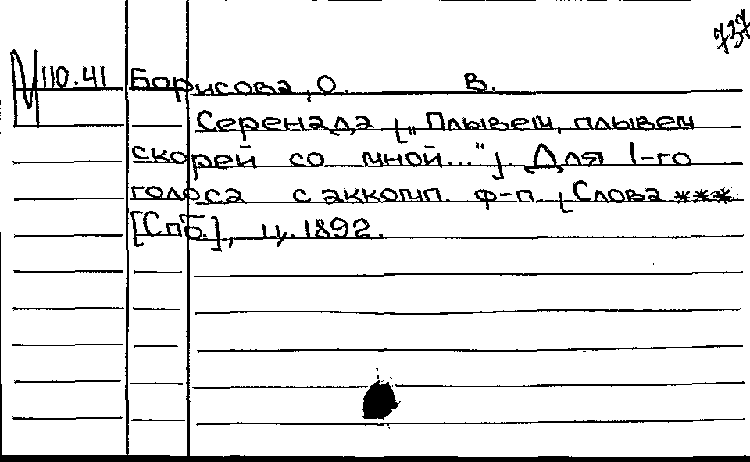 737
М 110.41 Борисова, О. В.
Серенада ["Плывем, плывем
скорей со мной..."]. Для 1-го
голоса с аккомп. ф-п. [Слова ***
[Спб.], ц. 1892.